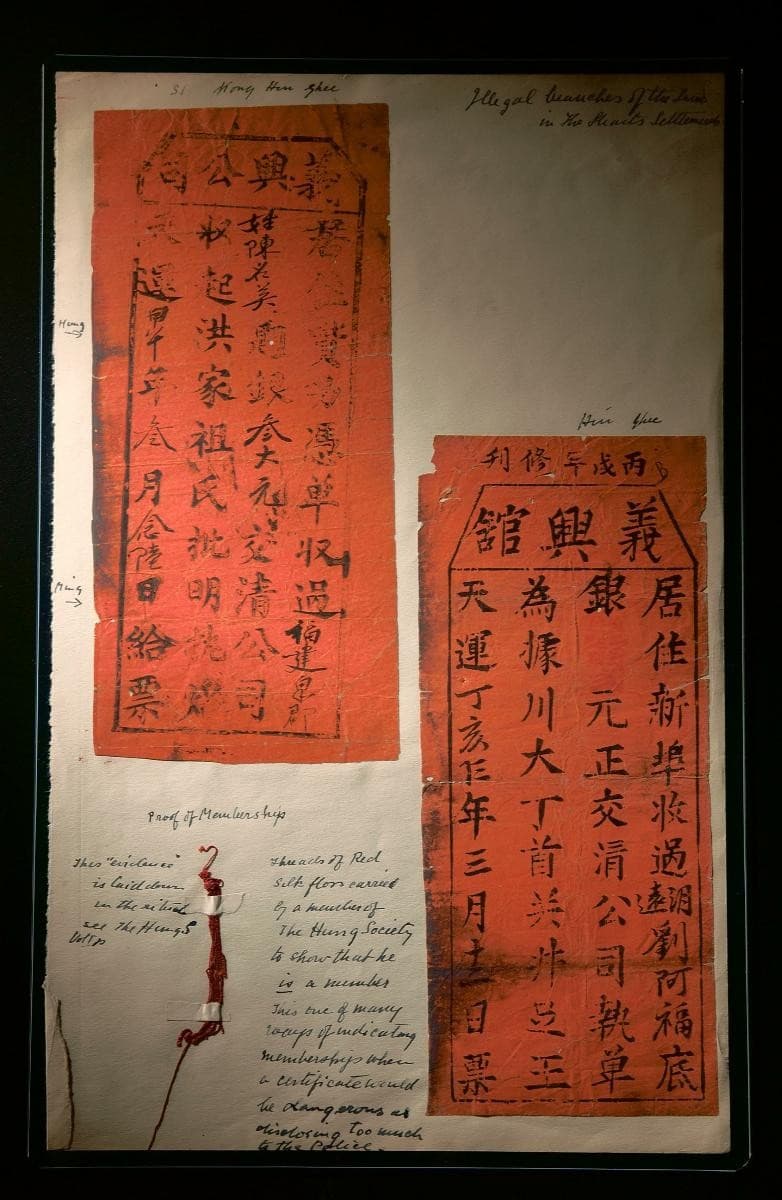 Hong Hin Ghee
Illegal branches of the
in The Straits Settlements
義興公司
居住寶 憑單收過福建皇郡
姓陳名英 銀叁大元交清公司
收起洪家祖氏批明執
天運甲午年叁月念陸日給票
Hung
Ming
Hin Ghee
丙戌年修刊
義興舘
居住新埠收過潮遠劉阿福底
銀元正交清公司執單
為據川大丁首
天運丁亥年三月十二日票
Proof of Membership
This "evidence"
is laid down
in the ritual
see The Hung S
Vol I p
Threads of Red
Silk floss carried
by a member of
The Hung Society
to show that he
is a member
This one of many
ways of indicating
membership when
a certificate would
be dangerous as
disclosing too much
to the Police.